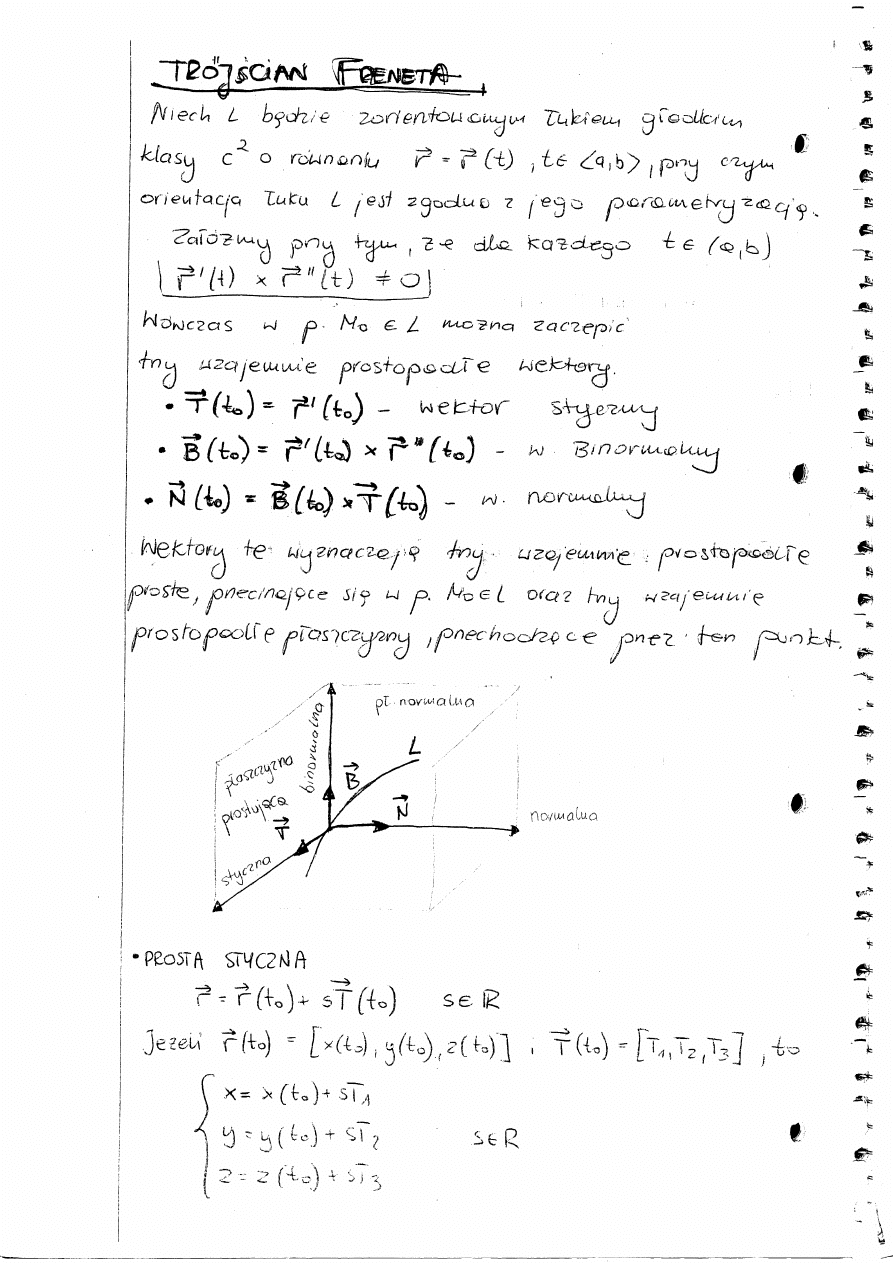 TRÓJŚCIAN FRENETA
Niech L będzie zorientowanym łukiem gładkim
klasy C² o równaniu r⃗ = r⃗(t), t∈ <a,b>, przy czym
orientacja łuku L jest zgodna z jego parametryzacją.
Załóżmy przy tym, że dla każdego t ∈ (a,b)
r⃗'(t) × r⃗''(t) ≠ 0
Wówczas w p. M₀ ∈ L można zaczepić
trzy wzajemnie prostopadłe wektory.
• T⃗(t₀) = r⃗'(t₀) – wektor styczny
• B⃗(t₀) = r⃗'(t₀) × r⃗''(t₀) – w. Binormalny
• N⃗(t₀) = B⃗(t₀) × T⃗(t₀) – w. normalny
Wektory te wyznaczają trzy wzajemnie prostopadłe
proste, przecinające się w p. M₀∈L oraz trzy wzajemnie
prostopadłe płaszczyzny, przechodzące przez ten punkt.
pł. normalna
binormalna
L
płaszczyzna
prostująca
B⃗
T⃗
N⃗
normalna
styczna
• PROSTA STYCZNA
r⃗ = r⃗(t₀) + sT⃗(t₀) s∈ℝ
Jeżeli r⃗(t₀) = [x(t₀), y(t₀), z(t₀)] i T⃗(t₀) = [T₁, T₂, T₃], to
x = x(t₀) + sT₁
y = y(t₀) + sT₂ s∈R
z = z(t₀) + sT₃